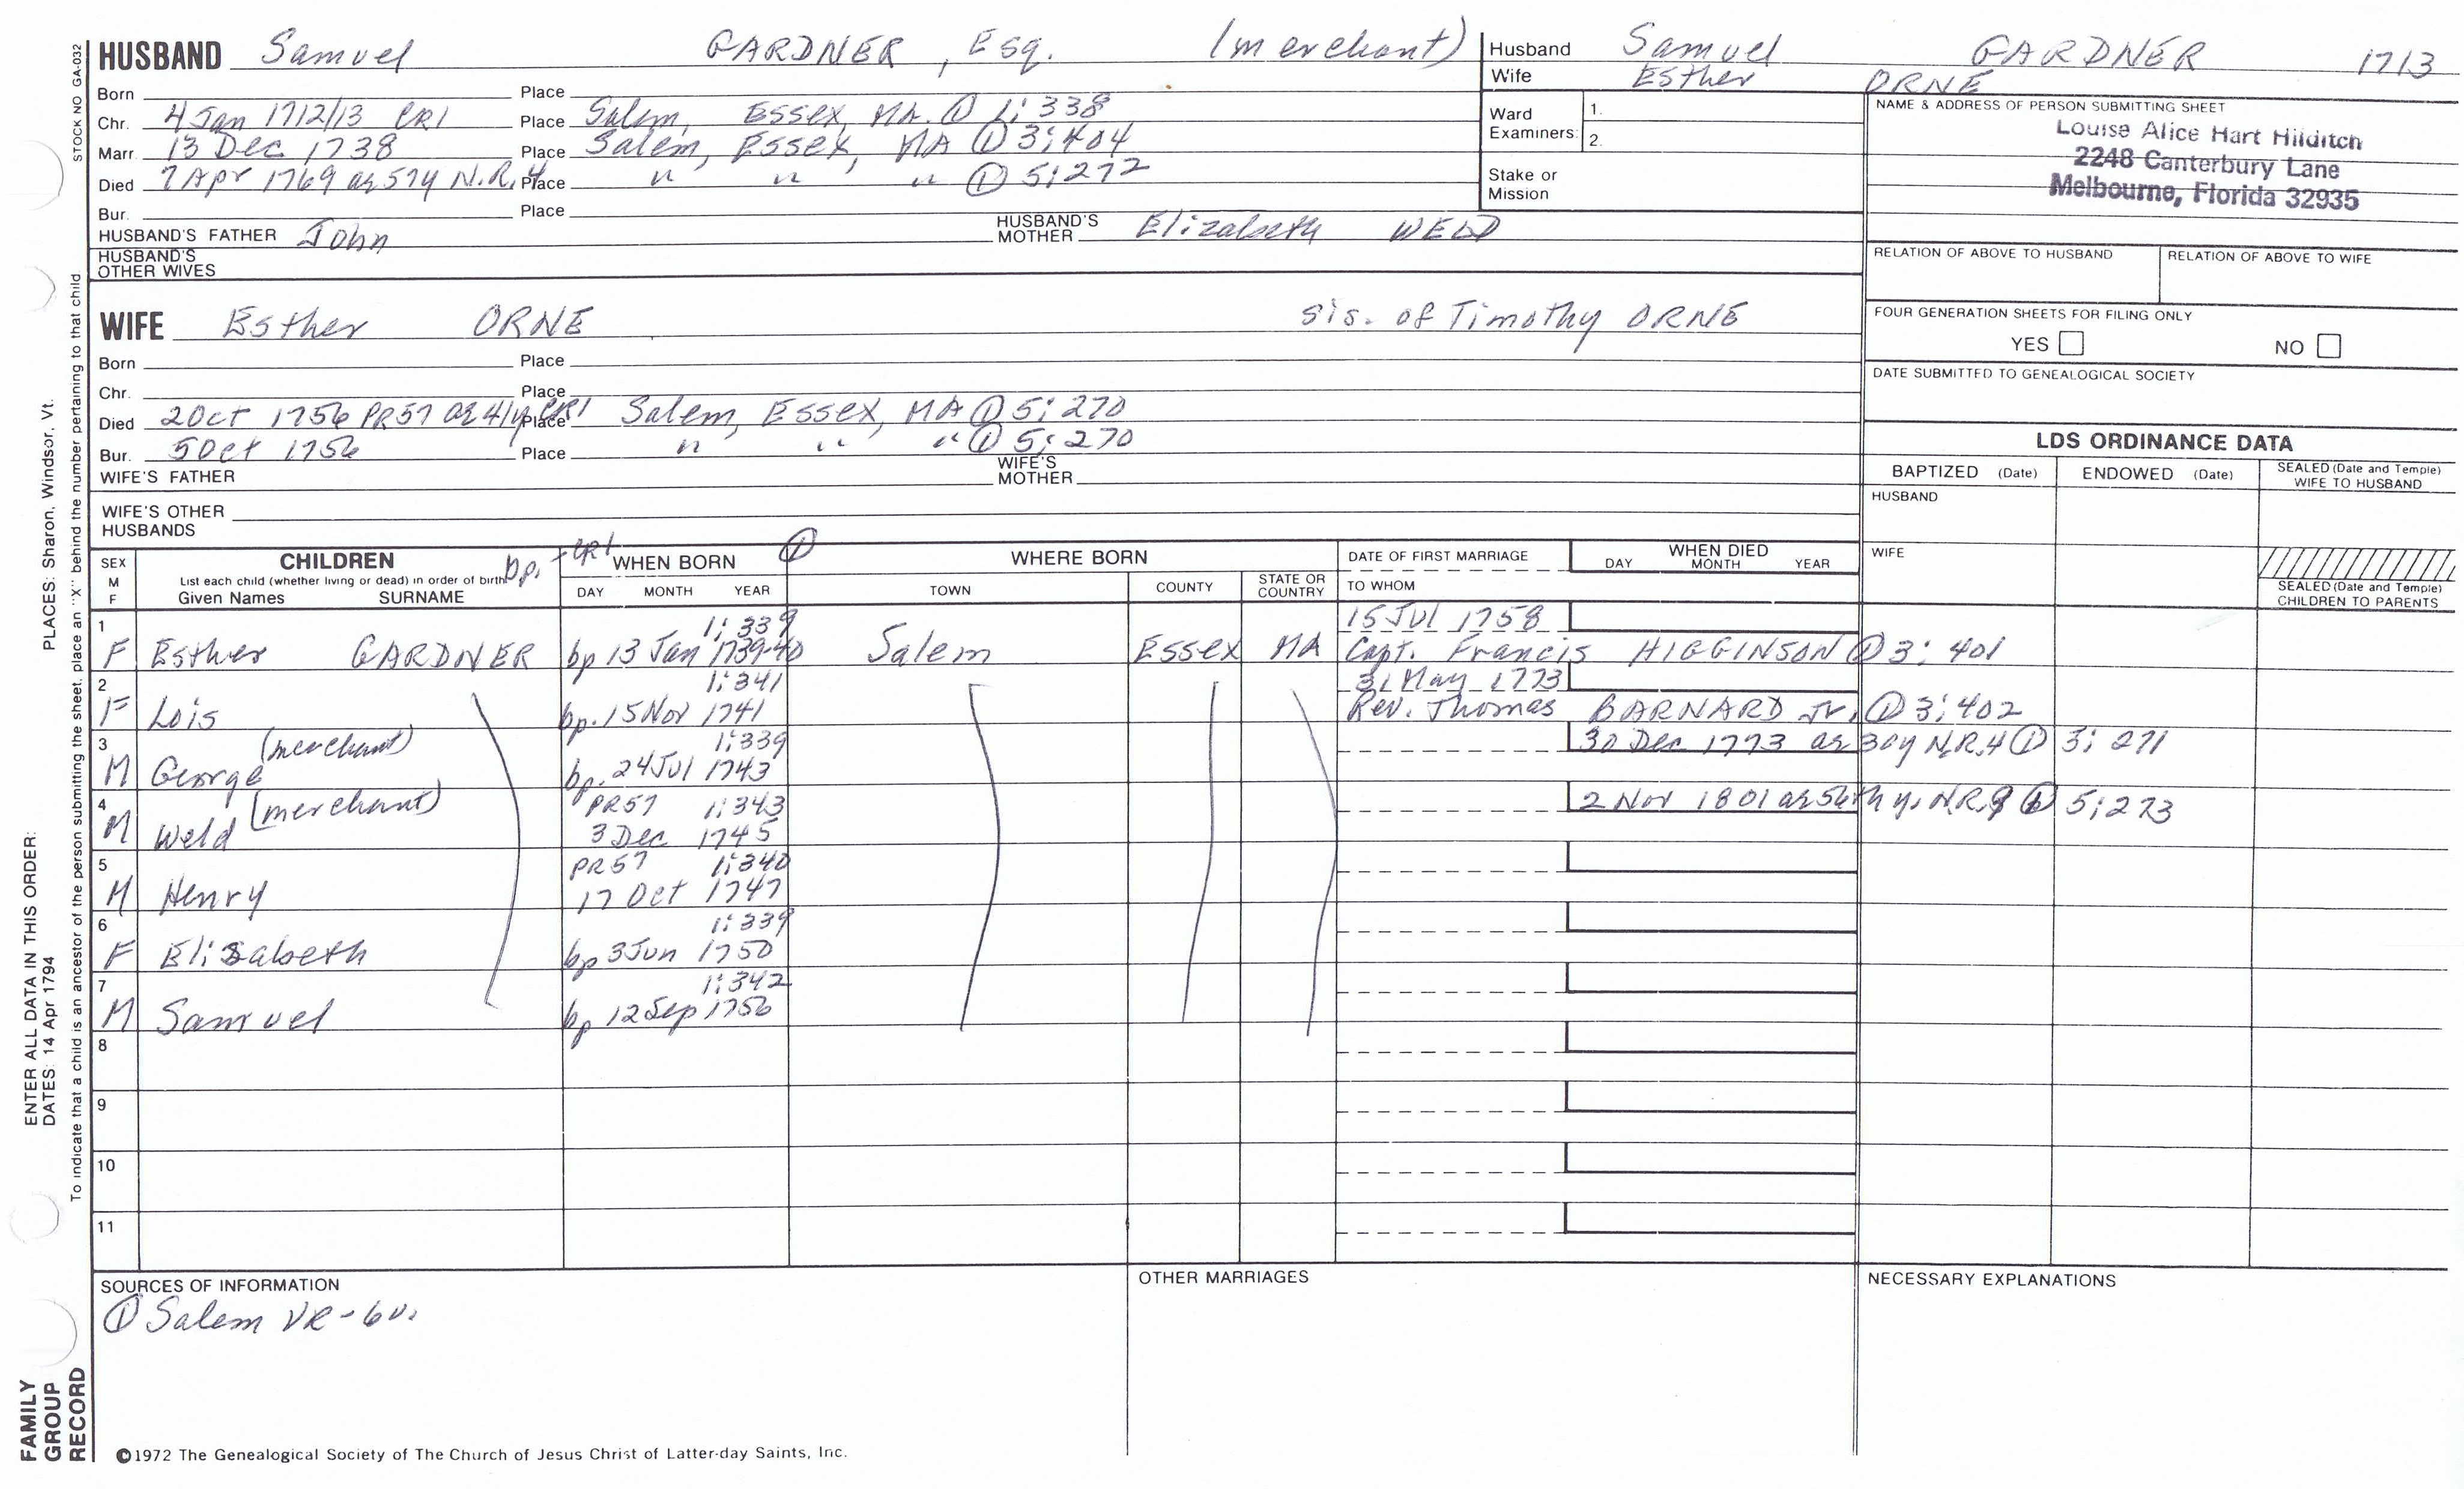 STOCK NO GA-032
HUSBAND Samuel GARDNER, Esq. (merchant)
Husband Samuel GARDNER 1713
Wife Esther ORNE
Born Place
Chr. 4 Jan 1712/13 CR1 Place Salem, Essex, MA. ① 1:338
Marr. 13 Dec 1738 Place Salem, Essex, MA ① 3:404
Died 7 Apr 1769 ae 57y N.R.4 Place " " " ① 5:272
Bur. Place
HUSBAND'S FATHER John
HUSBAND'S MOTHER Elizabeth WELD
HUSBAND'S OTHER WIVES
Ward Examiners: 1.
2.
Stake or Mission
NAME & ADDRESS OF PERSON SUBMITTING SHEET
Louise Alice Hart Hilditch
2248 Canterbury Lane
Melbourne, Florida 32935
RELATION OF ABOVE TO HUSBAND
RELATION OF ABOVE TO WIFE
WIFE Esther ORNE sis. of Timothy ORNE
Born Place
Chr. Place
Died 2 Oct 1756 PR57 ae 41y CR1 Place Salem, Essex, MA ① 5:270
Bur. 5 Oct 1756 Place " " " ① 5:270
WIFE'S FATHER
WIFE'S MOTHER
WIFE'S OTHER HUSBANDS
FOUR GENERATION SHEETS FOR FILING ONLY
YES NO
DATE SUBMITTED TO GENEALOGICAL SOCIETY
LDS ORDINANCE DATA
BAPTIZED (Date) ENDOWED (Date) SEALED (Date and Temple) WIFE TO HUSBAND
HUSBAND
WIFE
SEALED (Date and Temple) CHILDREN TO PARENTS
SEX M F
CHILDREN
List each child (whether living or dead) in order of birth
Given Names SURNAME
bp. - CR1
WHEN BORN ①
DAY MONTH YEAR
WHERE BORN
TOWN COUNTY STATE OR COUNTRY
DATE OF FIRST MARRIAGE
TO WHOM
WHEN DIED
DAY MONTH YEAR
1 1:339 15 Jul 1758
F Esther GARDNER bp 13 Jan 1739-40 Salem Essex MA Capt. Francis HIGGINSON ① 3:401
2 1:341 31 May 1773
F Lois bp. 15 Nov 1741 Rev. Thomas BARNARD Jr. ① 3:402
3 (merchant) 1:339 30 Dec 1773 ae 30y N.R.4 ① 3:271
M George bp. 24 Jul 1743
4 (merchant) PR57 1:343 2 Nov 1801 ae 56th y. N.R.9 ① 5:273
M Weld 3 Dec 1745
5 PR57 1:340
M Henry 17 Oct 1747
6 1:339
F Elizabeth bp 3 Jun 1750
7 1:342
M Samuel bp 12 Sep 1756
8
9
10
11
SOURCES OF INFORMATION
① Salem VR - 6v.
OTHER MARRIAGES
NECESSARY EXPLANATIONS
©1972 The Genealogical Society of The Church of Jesus Christ of Latter-day Saints, Inc.
FAMILY GROUP RECORD
ENTER ALL DATA IN THIS ORDER:
DATES: 14 Apr 1794
PLACES: Sharon, Windsor, Vt.
To indicate that a child is an ancestor of the person submitting the sheet, place an "X" behind the number pertaining to that child